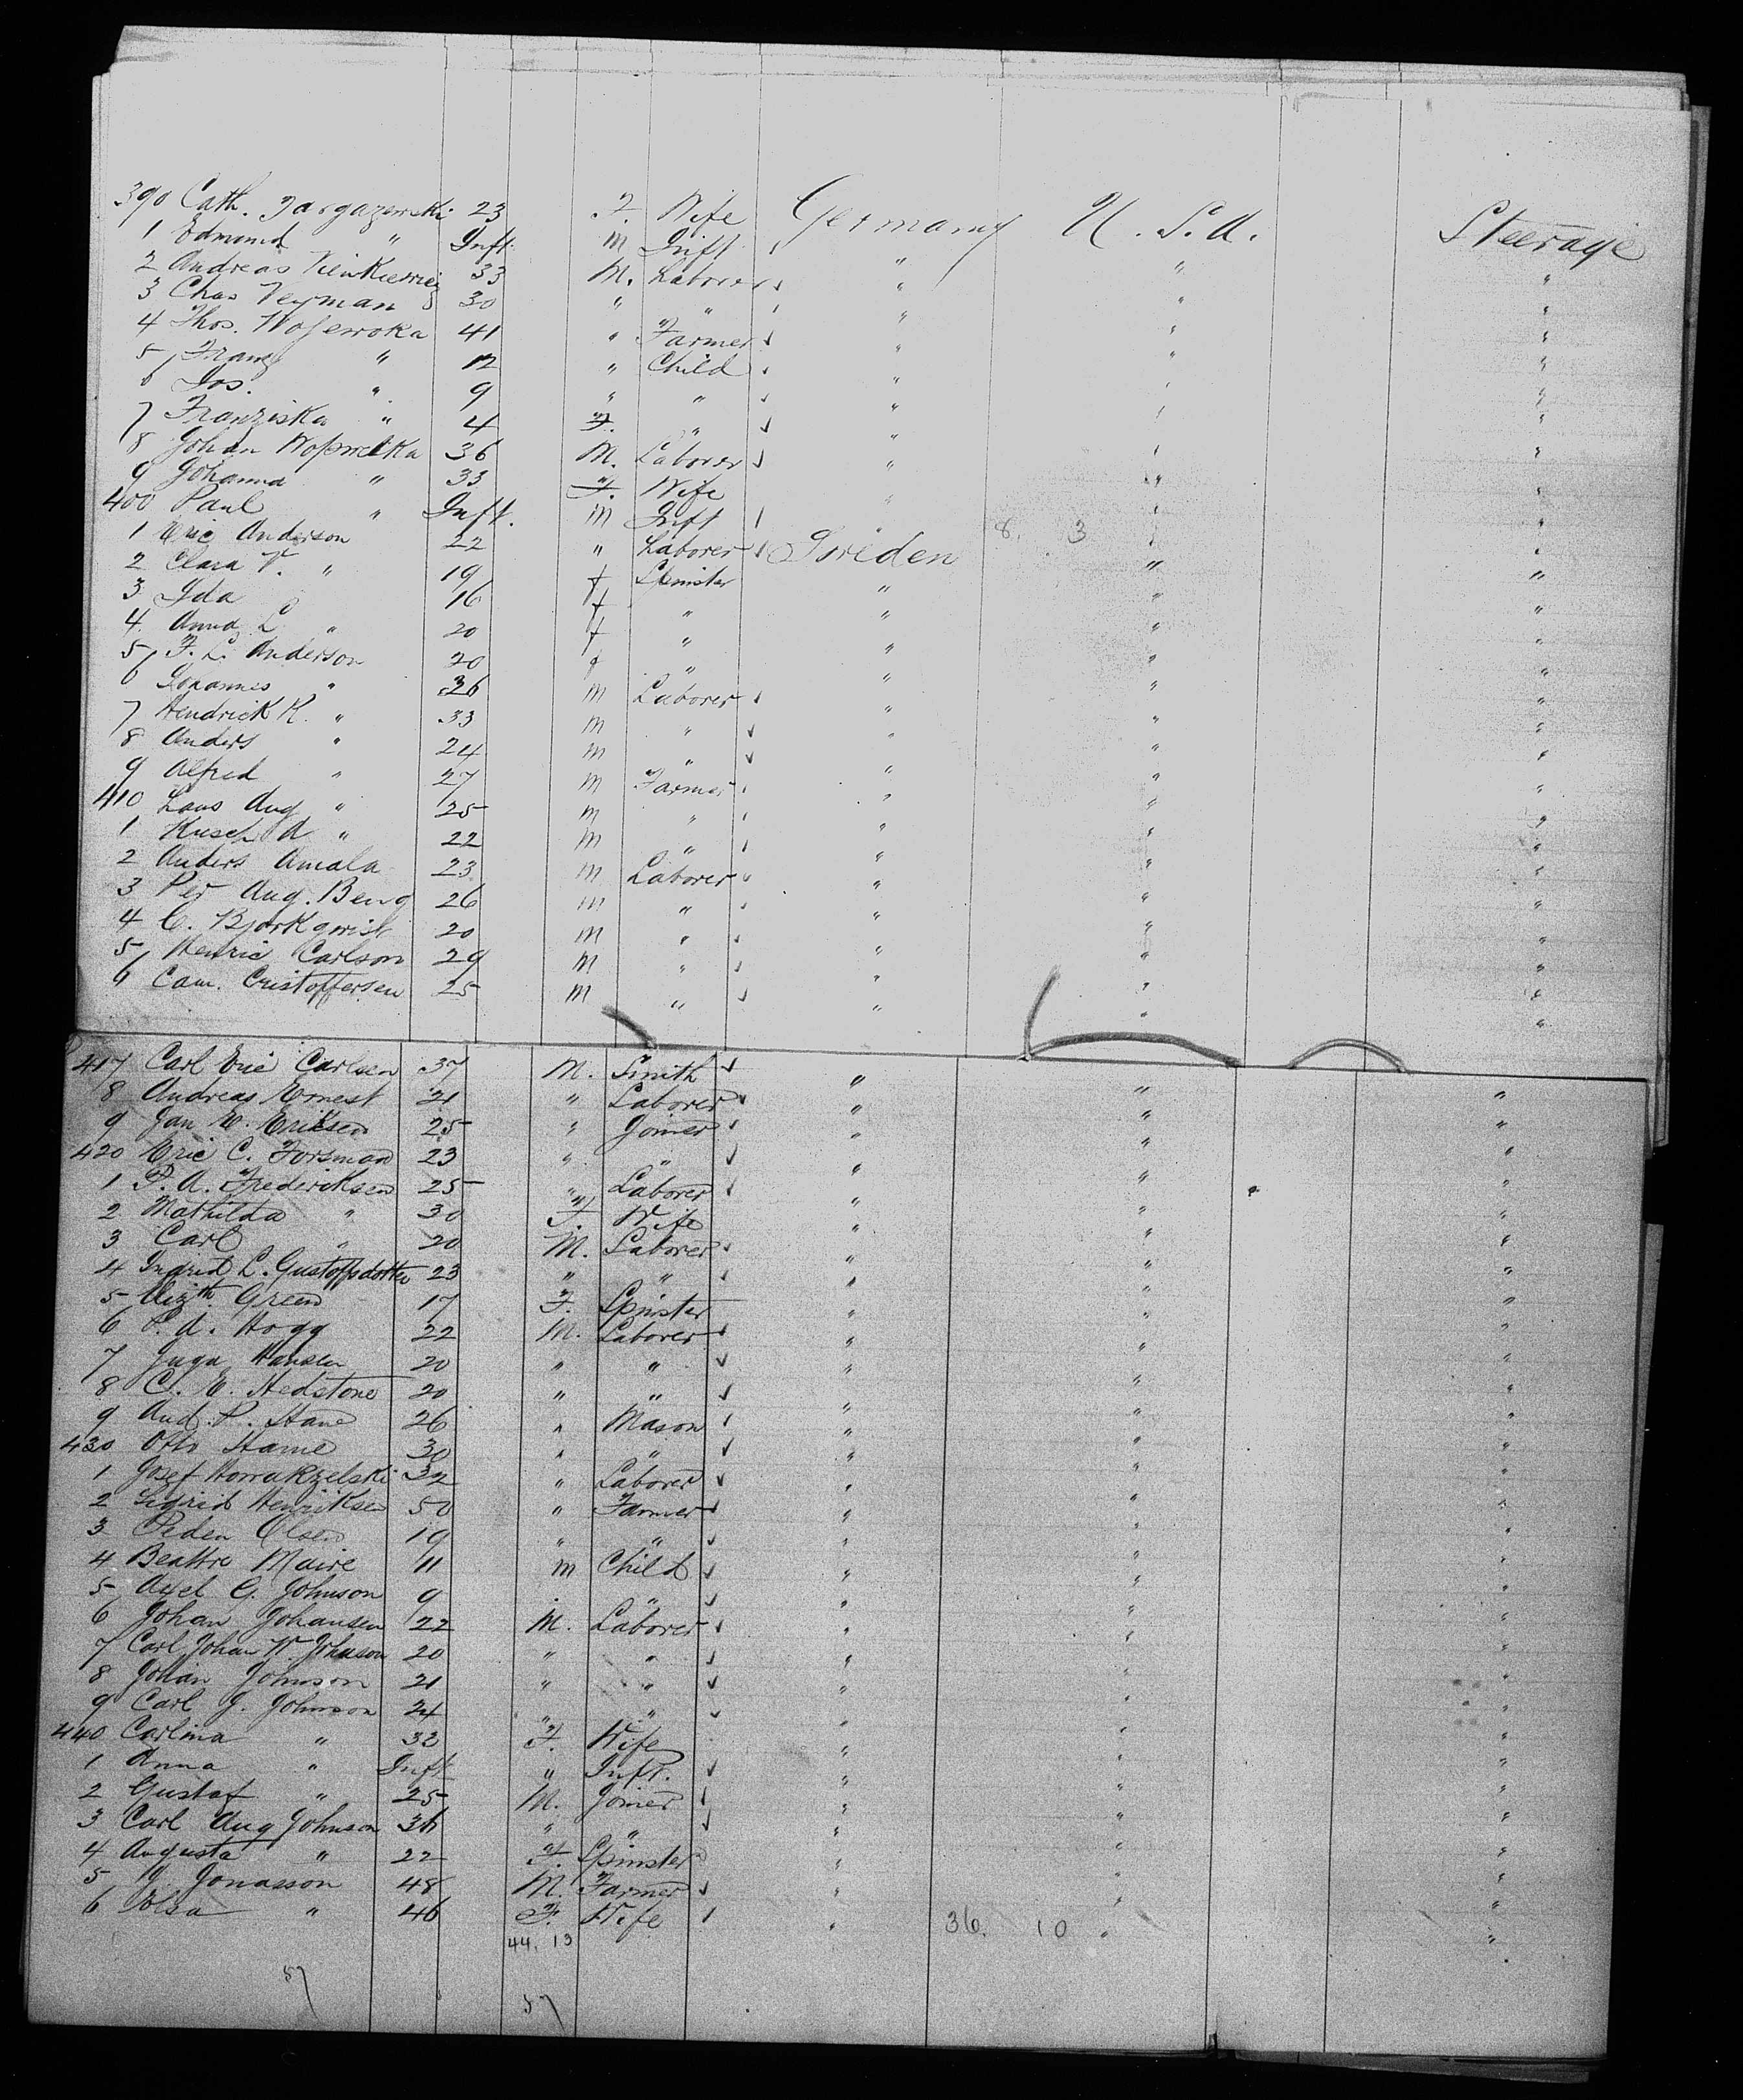 390 Cath. Targazewski 23 F. Wife Germany U.S.A. Steerage
1 Edmond " Inft. m Inft " " "
2 Andreas 33 M. Laborer " " "
3 Chas Veyman 30 " " " " "
4 Thos. 41 " Farmer " " "
5 Franz " 12 " Child " " "
6 Jos. " 9 " " " " "
7 Franziska " 4 F. " " " "
8 Johan 36 M. Laborer " " "
9 Johanna " 33 F. Wife " " "
400 Paul " Inft. m Inft " 8. 3 " "
1 Eric Anderson 22 " Laborer Sweden " "
2 Clara V. " 19 f Spinster " " "
3 Ida 16 f " " " "
4 Anna L " 20 f " " " "
5 F. L. Anderson 20 f " " " "
6 Johannes " 36 m Laborer " " "
7 Hendrick K. " 33 m " " " "
8 Anders " 24 m " " " "
9 Alfred " 27 m Farmer " " "
410 Lans Aug " 25 m " " " "
1 A " 22 m " " " "
2 Anders Amala 23 m Laborer " " "
3 Per Aug. Beng 26 m " " " "
4 C. Bjorkqvist 20 m " " " "
5 Henric Carlson 29 m " " " "
6 Cam. Cristoffersen 25 m " " " "
417 Carl Eric Carlsen 37 M. Smith " " "
8 Andreas Ernest 21 " Laborer " " "
9 Jan E. Eriksen 25 " Joiner " " "
420 Eric C. Forsman 23 " " " " "
1 P. A. Frederiksen 25 " Laborer " " "
2 Mathilda " 30 F. Wife " " "
3 Carl " 20 M. Laborer " " "
4 Ingrid L. Gustoffsdotter 23 " " " " "
5 Elizth. Green 17 F. Spinster " " "
6 P. A. Hogg 22 M. Laborer " " "
7 Hansen 20 " " " " "
8 C. E. Hedstone 20 " " " " "
9 And. P. Hane 26 " Mason " " "
430 Otto Hame 30 " " " " "
1 Josef 32 " Laborer " " "
2 Sigrid Henriksen 50 " Farmer " " "
3 Peden Olsen 19 " " " " "
4 Beattre Maire 11 m Child " " "
5 Axel G. Johnson 9 " " " " "
6 Johan Johansen 22 M. Laborer " " "
7 Carl Johan W. Johnson 20 " " " " "
8 Johan Johnson 21 " " " " "
9 Carl J. Johnson 24 " " " " "
440 Carlina " 32 F. Wife " " "
1 Anna " Inft " Inft. " " "
2 Gustaf " 25 M. Joiner " " "
3 Carl Aug Johnson 36 " " " " "
4 Augusta " 22 F. Spinster " " "
5 Jonasson 48 M. Farmer " " "
6 " 46 F. Wife " 36. 10 " "
44. 13
57
57